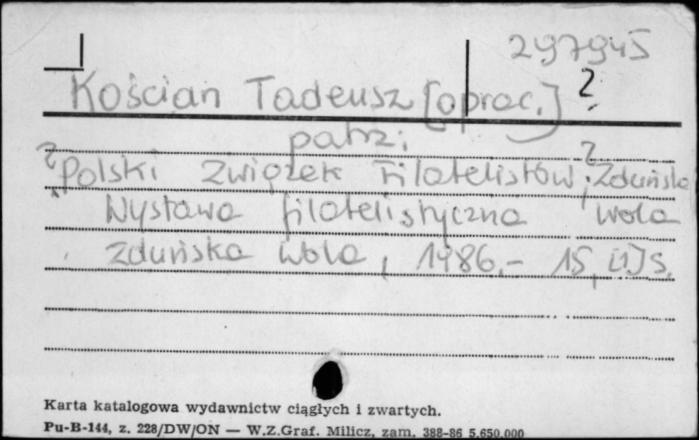 297945
Kościan Tadeusz [oprac.] ?
patrz:
? Polski Związek Filatelistów ; Zduńska ?
Wystawa filatelistyczna Wola
Zduńska Wola, 1986.- 15, [1] s.
Karta katalogowa wydawnictw ciągłych i zwartych.
Pu-B-144, z. 228/DW/ON — W.Z.Graf. Milicz, zam. 388-86 5.650.000